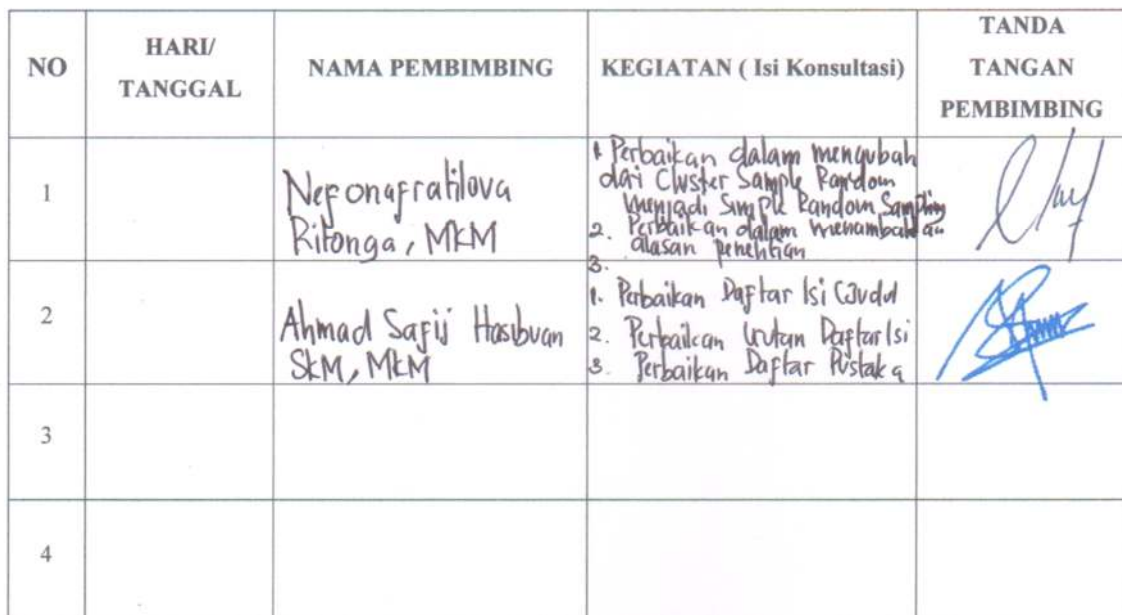 NO
HARI/
TANGGAL
NAMA PEMBIMBING
KEGIATAN ( Isi Konsultasi)
TANDA
TANGAN
PEMBIMBING
1
Nefonafratilova
Ritonga, MKM
1. Perbaikan dalam mengubah
dari Cluster Sample Random
menjadi Simple Random Sampling
2. Perbaikan dalam menambahkan
alasan penelitian
3.
2
Ahmad Safij Hasibuan
SKM, MKM
1. Perbaikan Daftar Isi (Judul
2. Perbaikan Urutan Daftar Isi
3. Perbaikan Daftar Pustaka
3
4